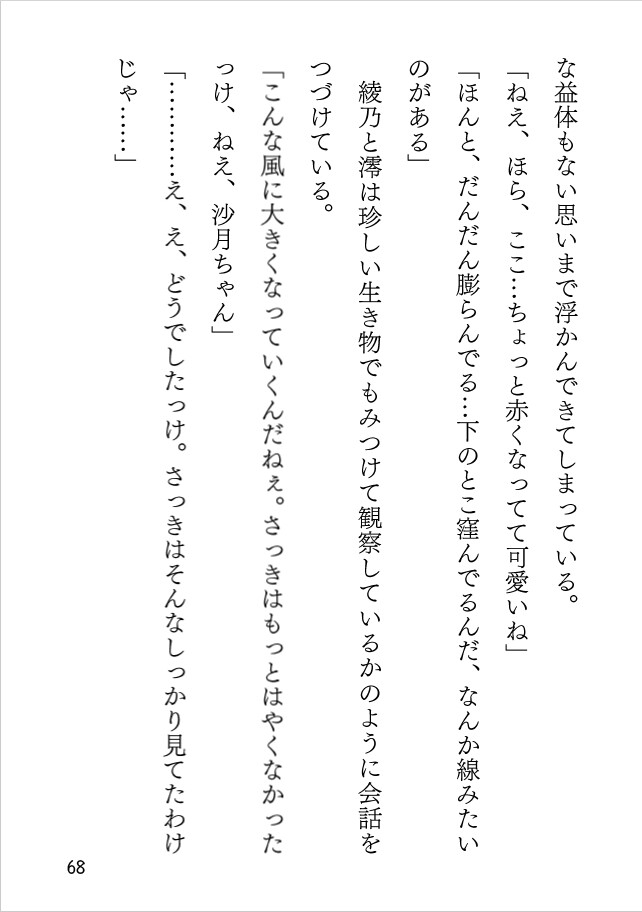 な益体もない思いまで浮かんできてしまっている。
「ねえ、ほら、ここ…ちょっと赤くなってて可愛いね」
「ほんと、だんだん膨らんでる…下のとこ窪んでるんだ、なんか線みたい
のがある」
　綾乃と澪は珍しい生き物でもみつけて観察しているかのように会話を
つづけている。
「こんな風に大きくなっていくんだねぇ。さっきはもっとはやくなかった
っけ、ねえ、沙月ちゃん」
「…………え、え、どうでしたっけ。さっきはそんなしっかり見てたわけ
じゃ……」
68